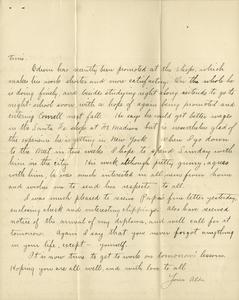 time.
Edwin has recently been promoted at the shops, which
makes his work shorter and more satisfactory. On the whole he
is doing finely, and besides studying right along intends to go to
night-school soon with a hope of again being promoted and
entering Cornell next fall. He says he could get better wages
in the Santa Fe shops at Ft. Madison but is nevertheless glad of
the experience he is getting in New York. When I go down
to the Met in two weeks I hope to spend Sunday with
him in the city. His work although pretty grimy, agrees
with him, he was much interested in all news from home
and wishes me to send his respects to all.
I was much pleased to receive Papa's fine letter yesterday,
enclosing check and interesting clippings. Also have received
notice of the arrival of my diploma, and will call for it
tomorrow. Again I say that you never forget anything
in your life, except – yourself.
It is now time to get to work on tomorrow's lessons.
Hoping you are all well, and with love to all
Your